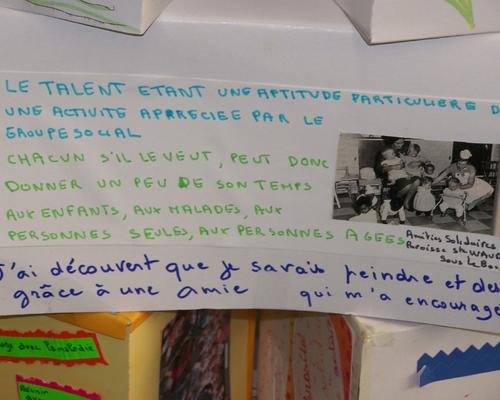 LE TALENT ETANT UNE APTITUDE PARTICULIERE D
UNE ACTIVITE APPRECIEE PAR LE
GROUPE SOCIAL
CHACUN S'IL LE VEUT, PEUT DONC
DONNER UN PEU DE SON TEMPS
AUX ENFANTS, AUX MALADES, AUX
PERSONNES SEULES, AUX PERSONNES AGEES
Amitiés Solidaires
Paroisse St WAU
Sous le Bo
J'ai découvert que je savais peindre et des
grâce à une amie qui m'a encouragé